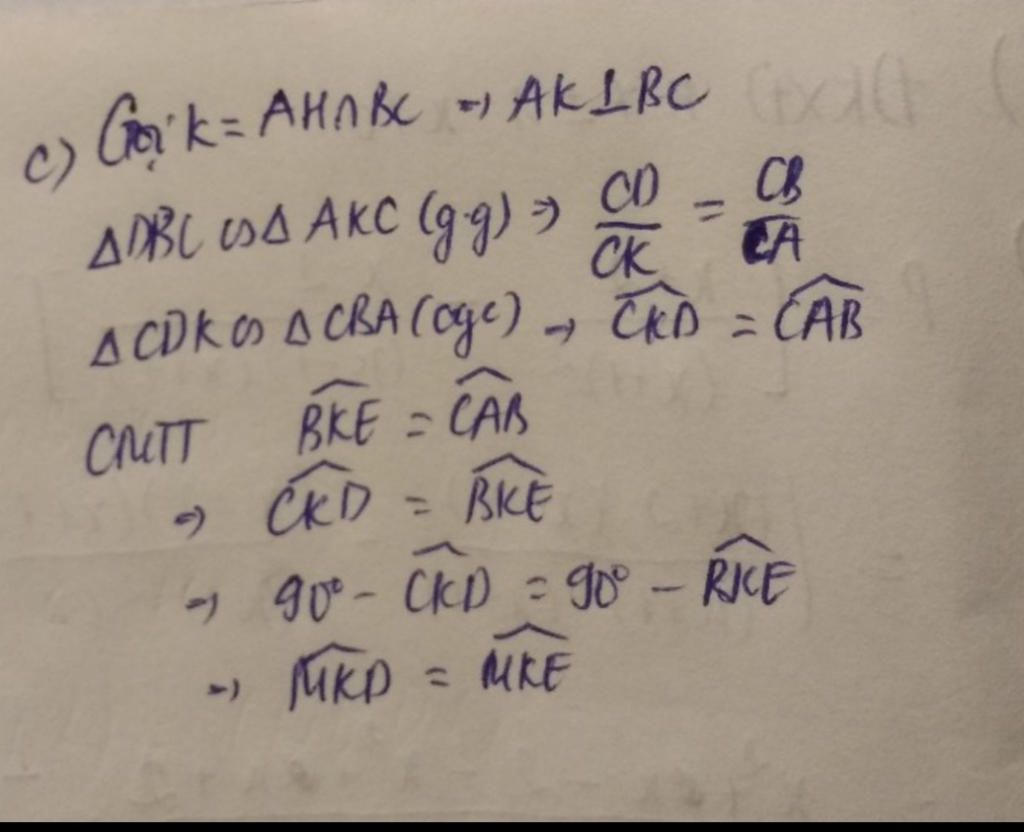 c) Gọi K = AH∩BC → AK⊥BC
ΔDBC ∽ Δ AKC (g.g) ⇒ CD/CK = CB/CA
Δ CDK ∽ Δ CBA (cgc) → \widehat{CKD} = \widehat{CAB}
CMTT \widehat{BKE} = \widehat{CAB}
⇒ \widehat{CKD} = \widehat{BKE}
⇒ 90° - \widehat{CKD} = 90° - \widehat{BKE}
⇒ \widehat{MKD} = \widehat{MKE}